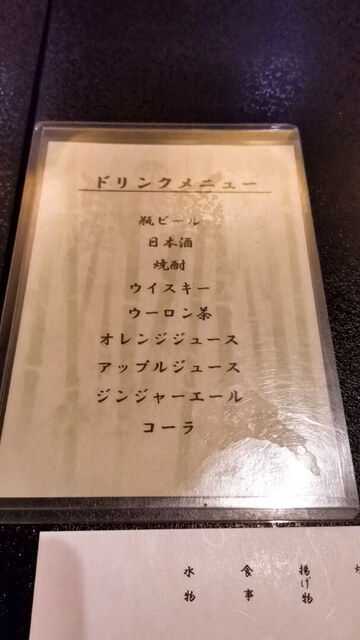 ドリンクメニュー
瓶ビール
日本酒
焼酎
ウイスキー
ウーロン茶
オレンジジュース
アップルジュース
ジンジャーエール
コーラ
揚げ物
食事
水物